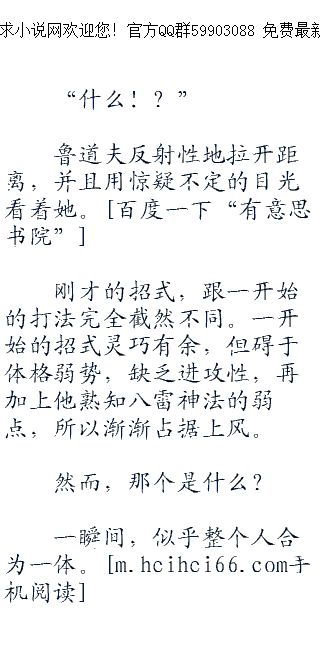 求小说网欢迎您! 官方QQ群59903088 免费最新
“什么!?”
鲁道夫反射性地拉开距
离，并且用惊疑不定的目光
看着她。[百度一下“有意思
书院”]
刚才的招式，跟一开始
的打法完全截然不同。一开
始的招式灵巧有余，但碍于
体格弱势，缺乏进攻性，再
加上他熟知八雷神法的弱
点，所以渐渐占据上风。
然而，那个是什么?
一瞬间，似乎整个人合
为一体。[m.hcihci66.com手
机阅读]